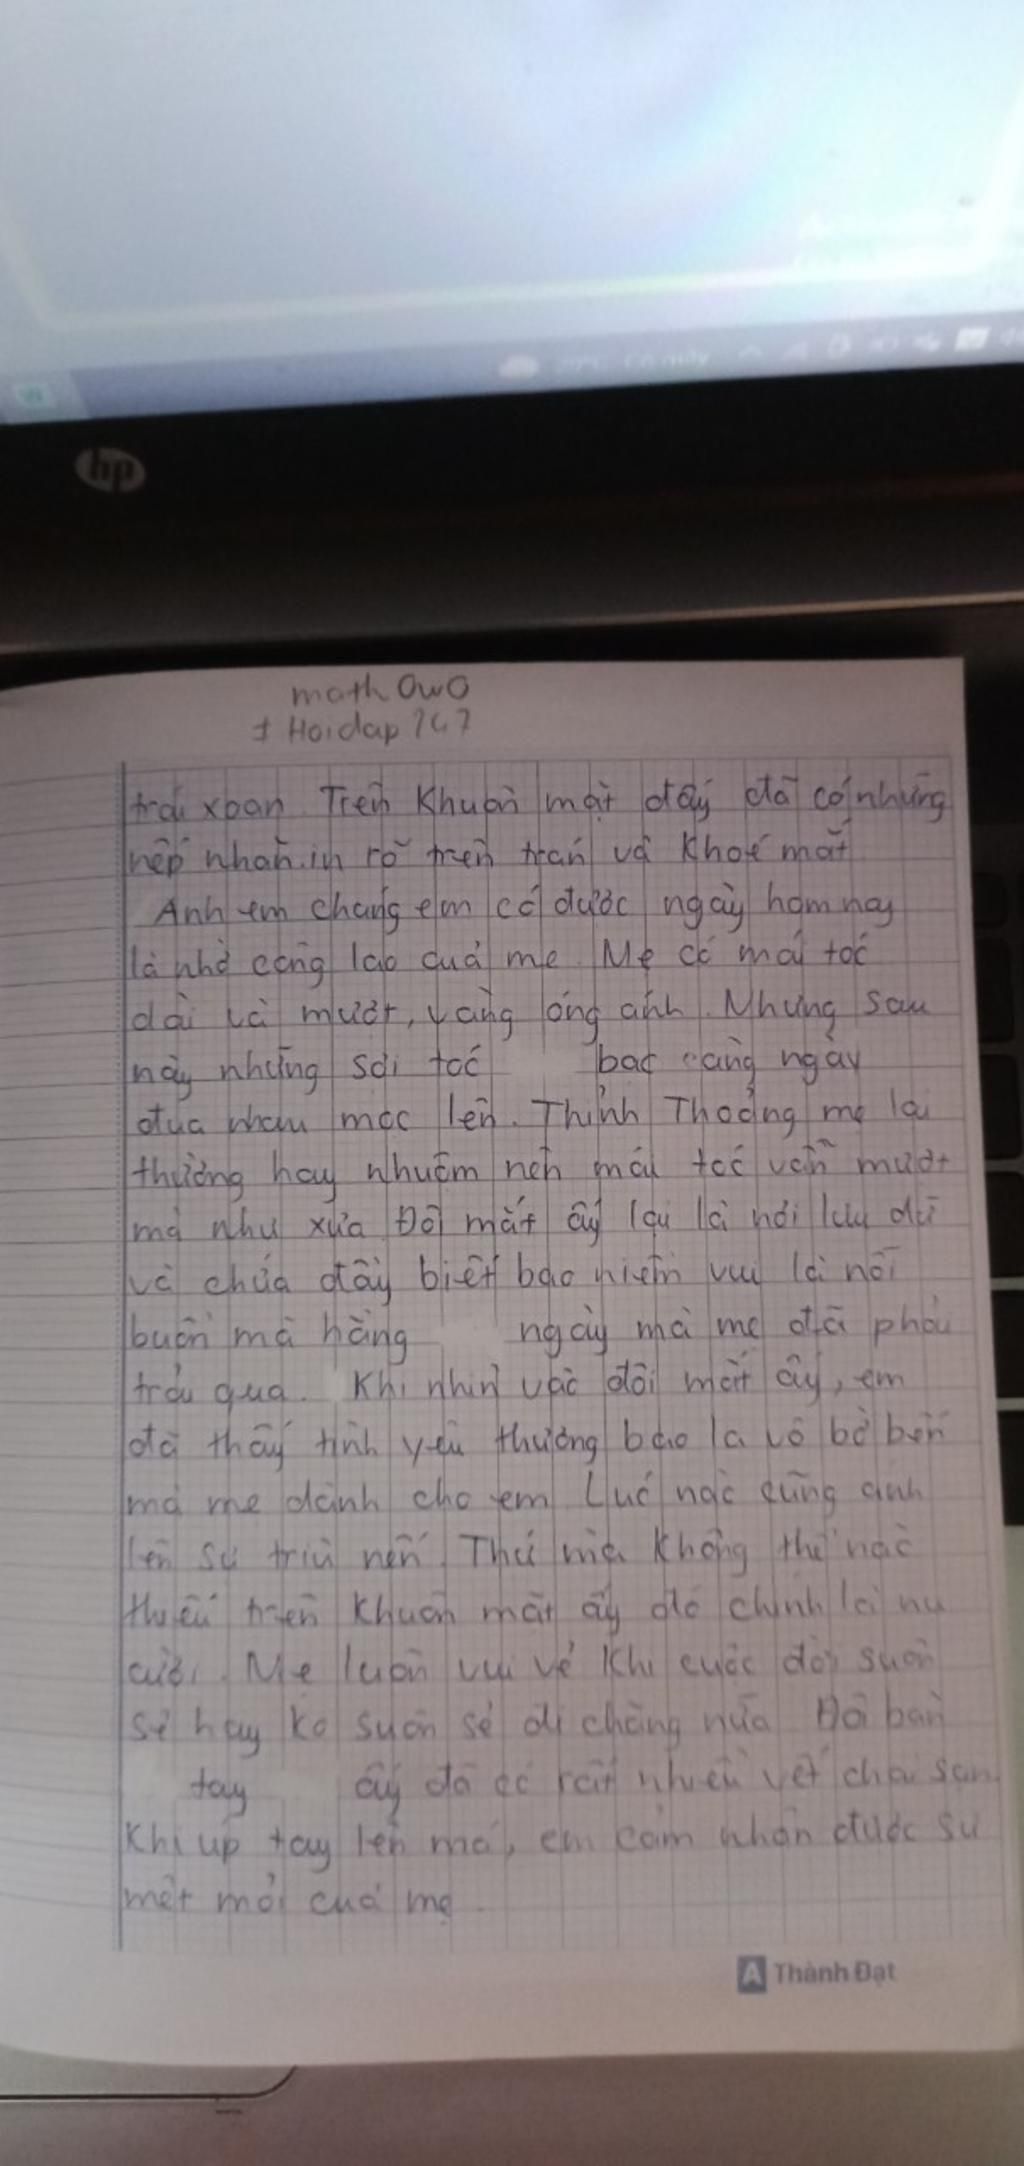 hp
math OwO
+ Hoidap 247
trái xoan. Trên khuôn mặt đấy đã có những
nếp nhăn in rõ trên trán và khoé mắt
Anh em chúng em có được ngày hôm nay
là nhờ công lao của mẹ. Mẹ có mái tóc
dài và mượt, vàng óng ánh. Nhưng sau
này những sợi tóc bạc càng ngày
đua nhau mọc lên. Thỉnh Thoảng mẹ lại
thường hay nhuộm nên mái tóc vẫn mượt
mà như xưa. Đôi mắt ấy lại là nơi lưu dữ
và chứa đầy biết bao niềm vui là nỗi
buồn mà hằng ngày mà mẹ đã phải
trải qua. Khi nhìn vào đôi mắt ấy, em
đã thấy tình yêu thương bao la vô bờ bến
mà mẹ dành cho em Lúc nào cũng ánh
lên sự trìu nến. Thứ mà không thể nào
thiếu trên khuôn mặt ấy đó chính là nụ
cười. Mẹ luôn vui vẻ khi cuộc đời suôn
sẻ hay ko suôn sẻ đi chăng nữa Đôi bàn
tay ấy đã có rất nhiều vết chai sạn.
Khi úp tay lên má, em cảm nhận được sự
mệt mỏi của mẹ.
A Thành Đạt